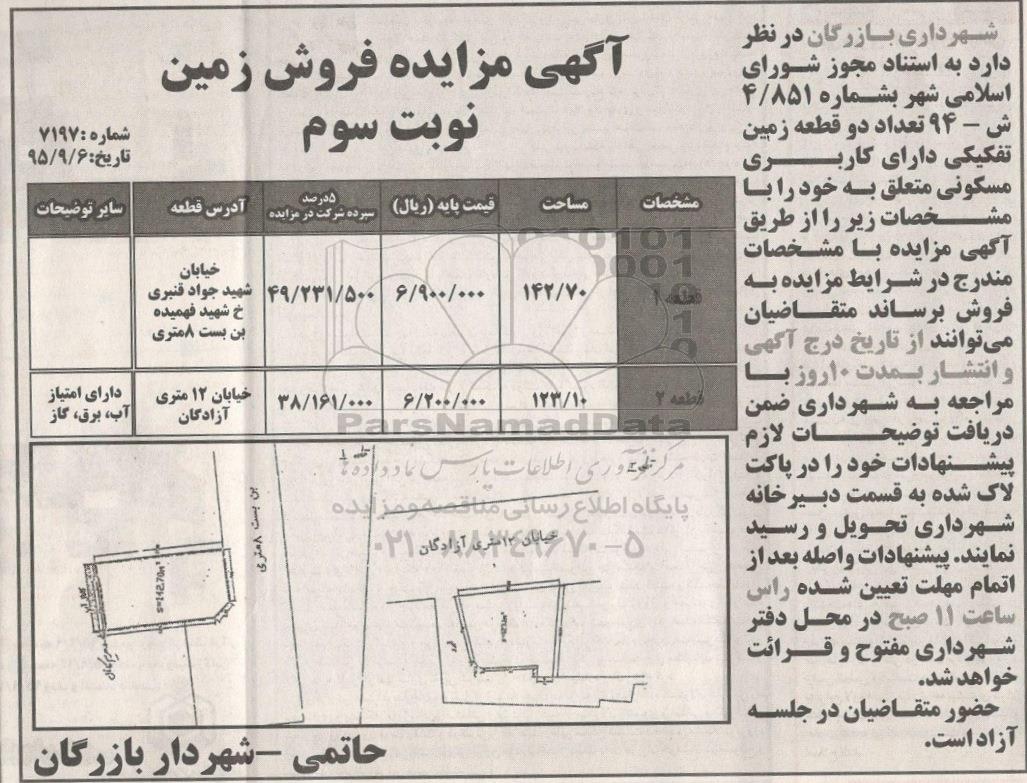 آگهی مزایده فروش زمین
نوبت سوم
شماره :۷۱۹۷
تاریخ:۹۵/۹/۶
شهرداری بازرگان در نظر
دارد به استناد مجوز شورای
اسلامی شهر بشماره ۴/۸۵۱
ش - ۹۴ تعداد دو قطعه زمین
تفکیکی دارای کاربری
مسکونی متعلق به خود را با
مشخصات زیر را از طریق
آگهی مزایده با مشخصات
مندرج در شرایط مزایده به
فروش برساند متقاضیان
می‌توانند از تاریخ درج آگهی
و انتشار بمدت ۱۰روز با
مراجعه به شهرداری ضمن
دریافت توضیحات لازم
پیشنهادات خود را در پاکت
لاک شده به قسمت دبیرخانه
شهرداری تحویل و رسید
نمایند. پیشنهادات واصله بعد از
اتمام مهلت تعیین شده راس
ساعت ۱۱ صبح در محل دفتر
شهرداری مفتوح و قرائت
خواهد شد.
حضور متقاضیان در جلسه
آزاد است.
مشخصات مساحت قیمت پایه (ریال) ۵درصد سپرده شرکت در مزایده آدرس قطعه سایر توضیحات
قطعه ۱ ۱۴۲/۷۰ ۶/۹۰۰/۰۰۰ ۴۹/۲۳۱/۵۰۰ خیابان
شهید جواد قنبری
خ شهید فهمیده
بن بست ۸متری
قطعه ۲ ۱۲۳/۱۰ ۶/۲۰۰/۰۰۰ ۳۸/۱۶۱/۰۰۰ خیابان ۱۲ متری دارای امتیاز
آزادگان آب، برق، گاز
ParsNamadData
مرکز فرآوری اطلاعات پارس نماد داده ها
پایگاه اطلاع رسانی مناقصه و مزایده
۰۲۱-۸۸۳۴۹۶۷۰-۵
بن بست ۸متری
s=142.70m²
خیابان ۱۲متری آزادگان
حاتمی -شهردار بازرگان